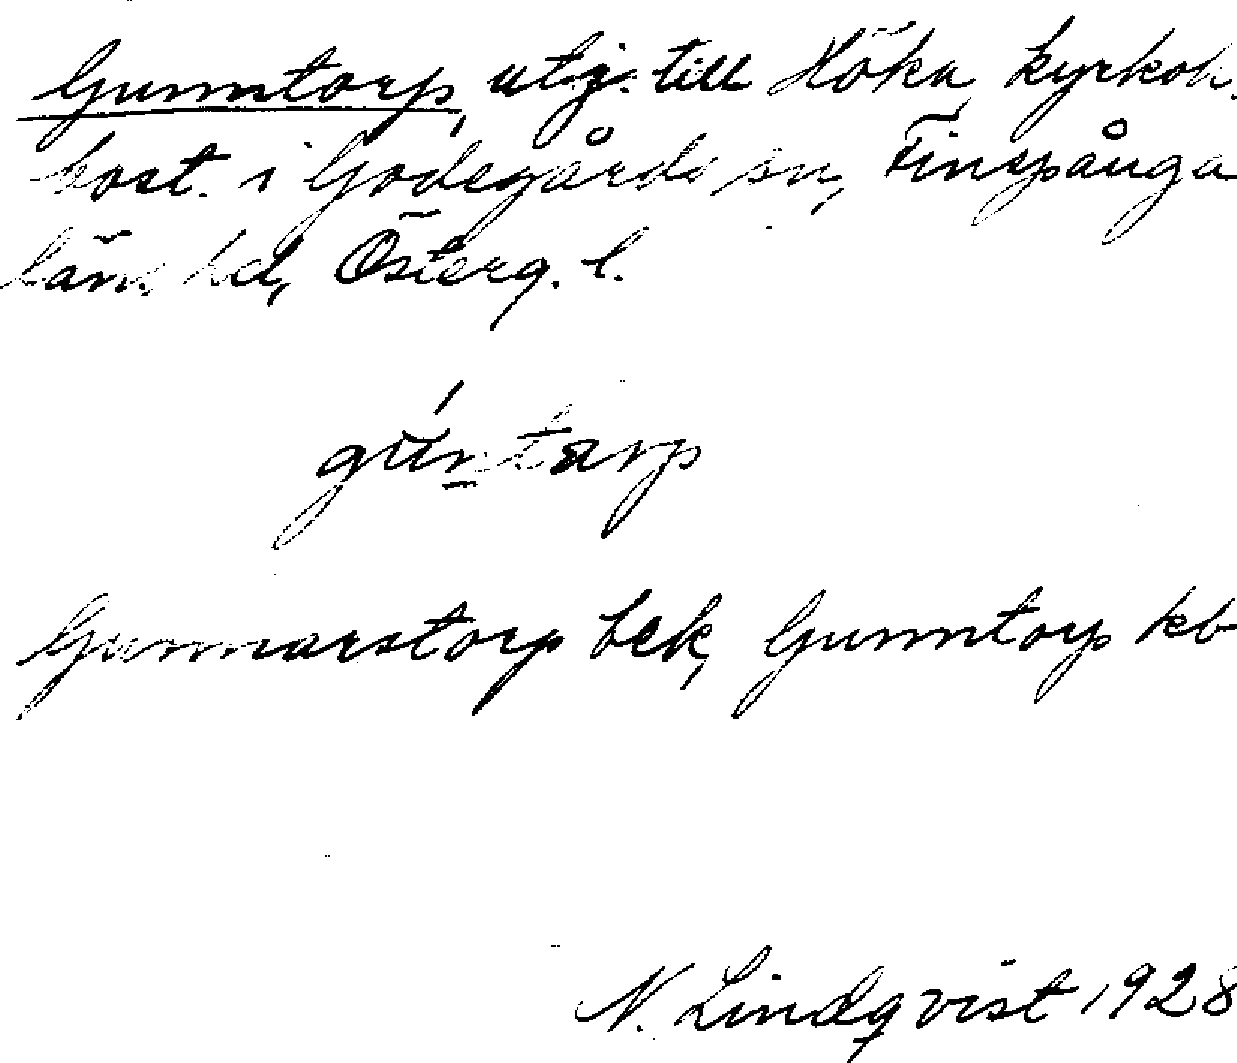 Gunntorp, utj. till Höka, kyrkoh.
bost. i Godegårds sn, Finspånga
läns hd, Österg. l.
gúntarp
Gunnarstorp bek, Gunntorp kb
N. Lindqvist 1928